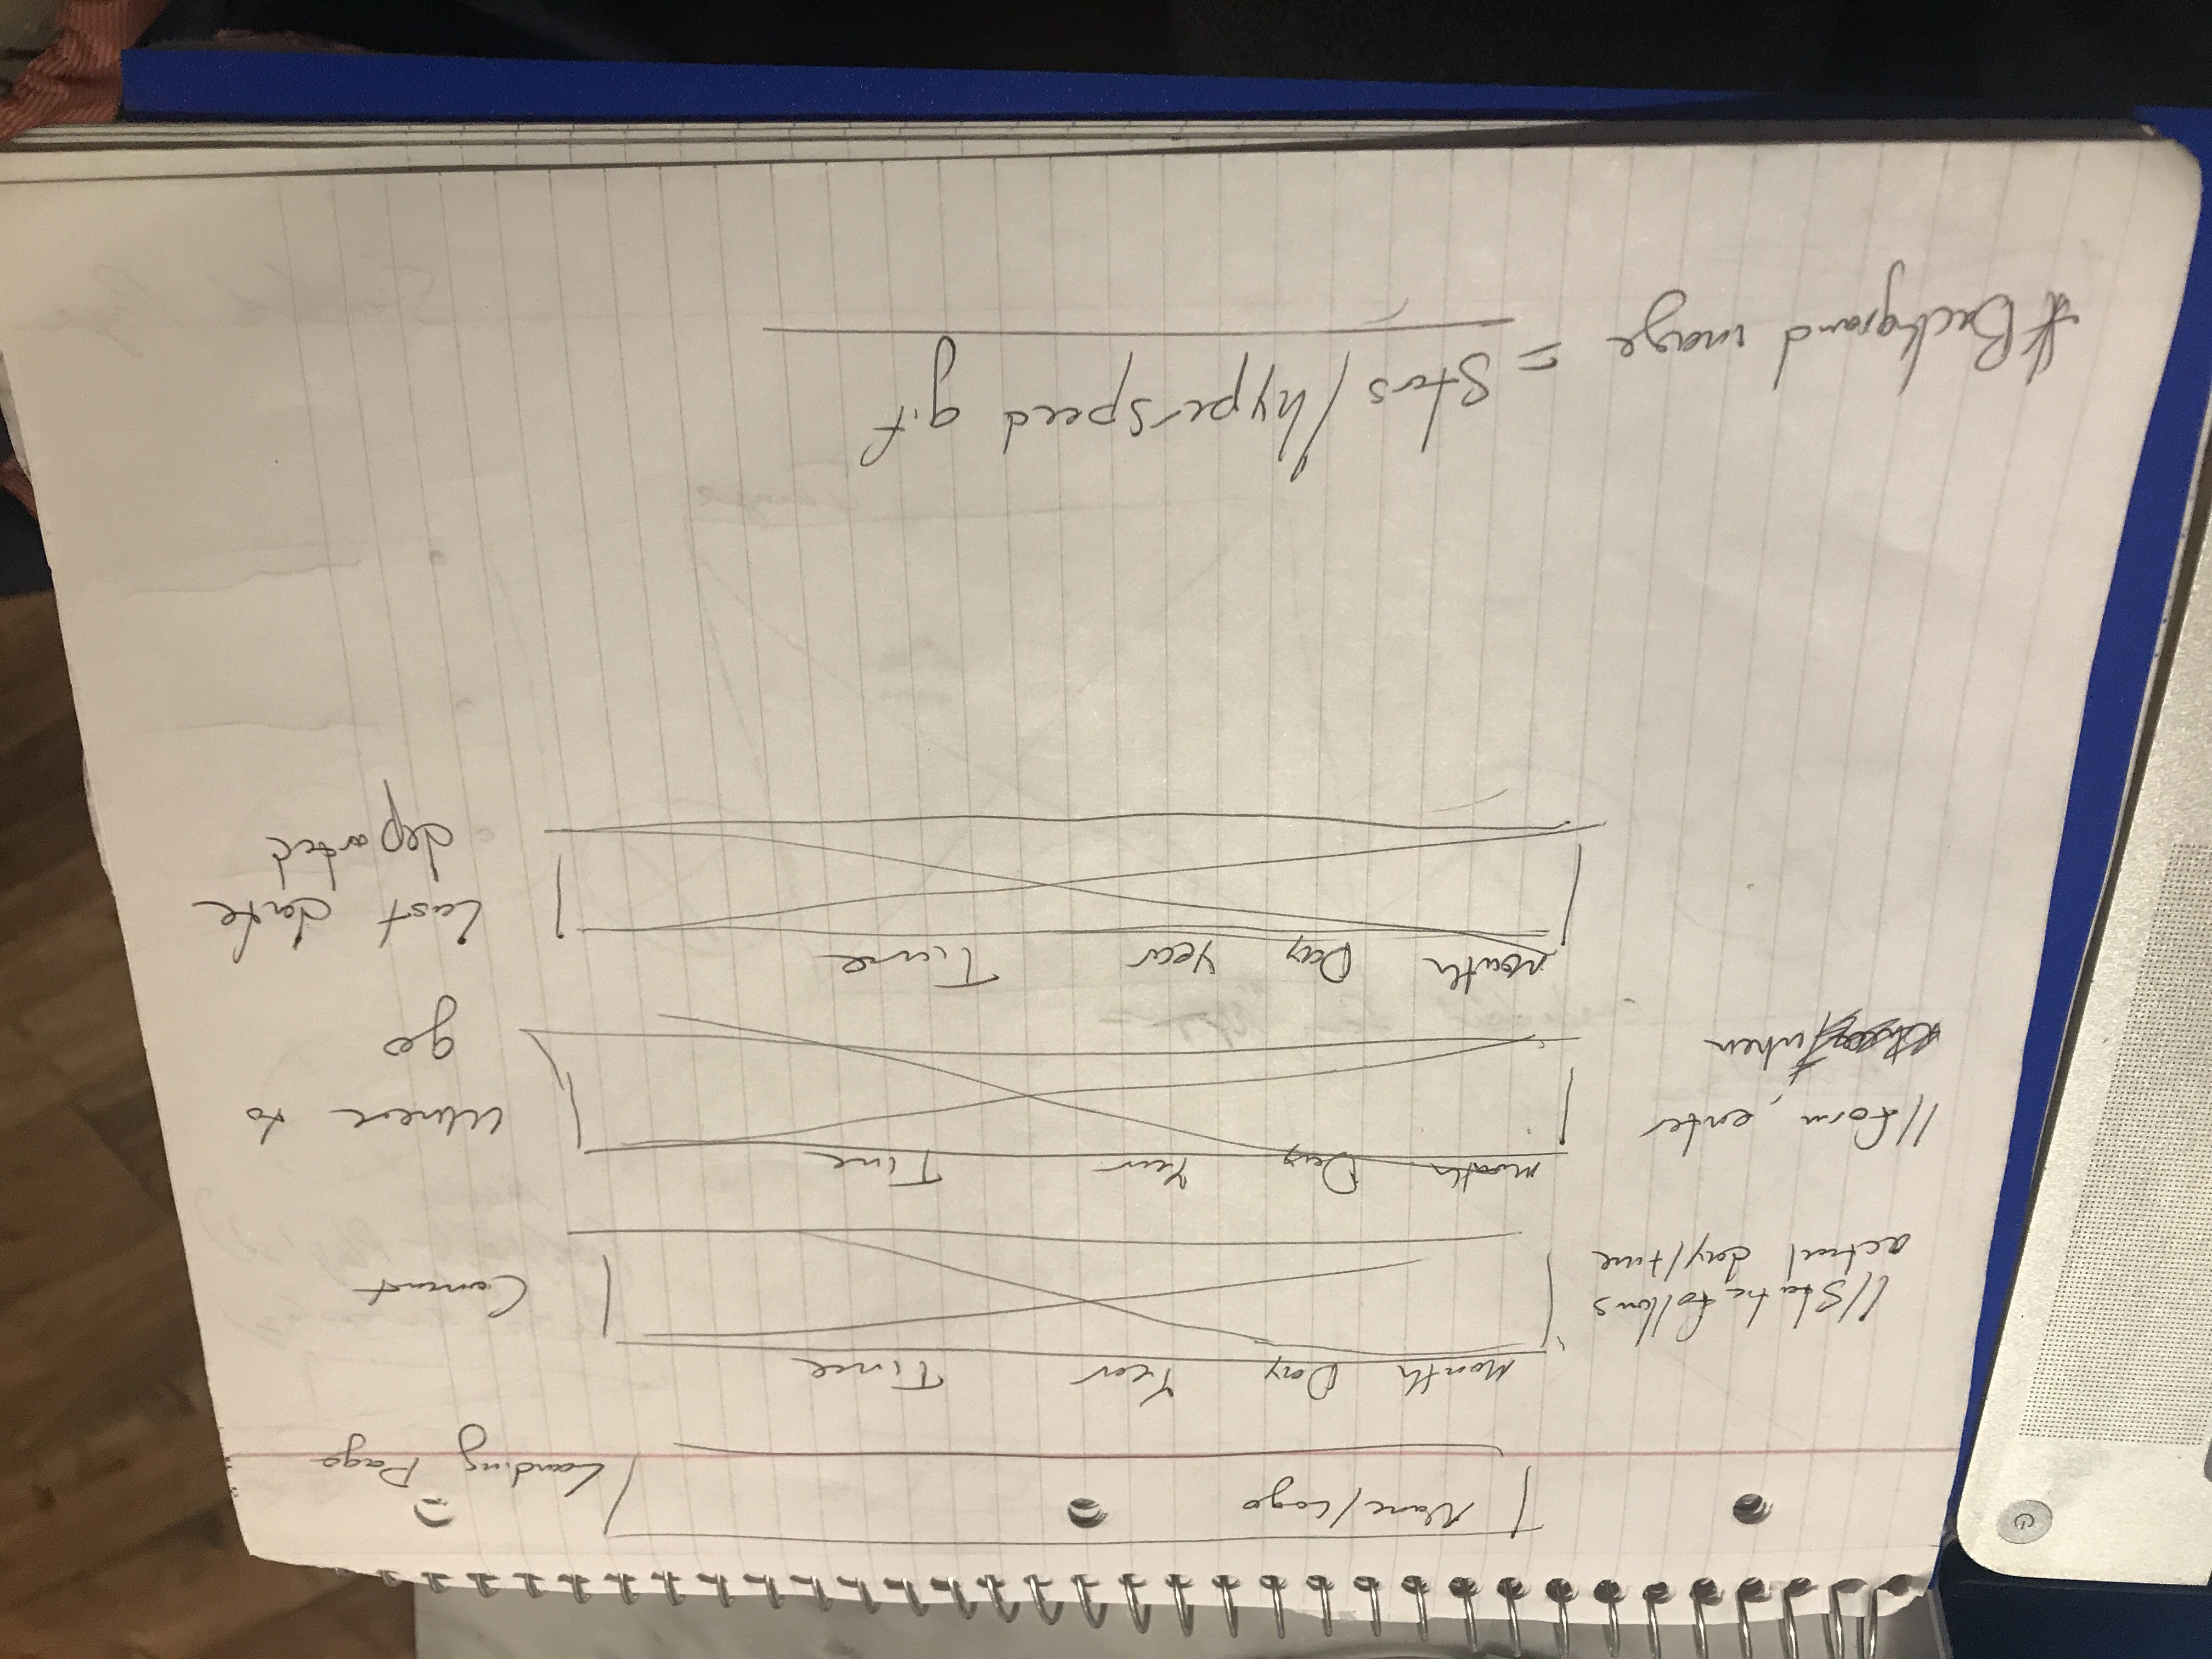 Name/Logo
Landing Page
Month Day Year Time
//Static follows
actual day/time
Current
Month Day Year Time
//form, enter
when
Where to
go
Month Day Year Time
Last date
departed
*Background image = Stars/hyperspeed gif